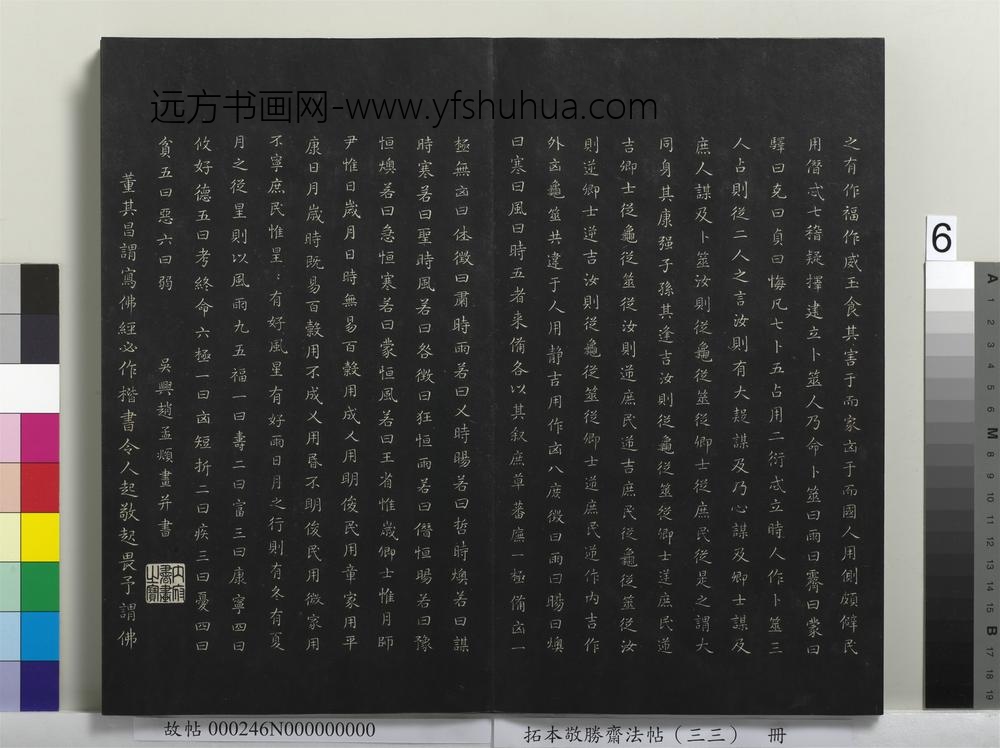 远方书画网-www.yfshuhua.com
之有作福作威玉食其害于而家凶于而國人用側頗僻民
用僭忒七稽疑擇建立卜筮人乃命卜筮曰雨曰霽曰蒙曰
驛曰克曰貞曰悔凡七卜五占用二衍忒立時人作卜筮三
人占則從二人之言汝則有大疑謀及乃心謀及卿士謀及
庶人謀及卜筮汝則從龜從筮從卿士從庶民從是之謂大
同身其康强子孫其逢吉汝則從龜從筮從卿士逆庶民逆
吉卿士從龜從筮從汝則逆庶民逆吉庶民從龜從筮從汝
則逆卿士逆吉汝則從龜從筮從卿士逆庶民逆作内吉作
外凶龜筮共違于人用静吉用作凶八庶徵曰雨曰暘曰燠
曰寒曰風曰時五者来備各以其叙庶草蕃廡一極備凶一
極無凶曰休徵曰肅時雨若曰乂時暘若曰哲時燠若曰謀
時寒若曰聖時風若曰咎徵曰狂恒雨若曰僭恒暘若曰豫
恒燠若曰急恒寒若曰蒙恒風若曰王省惟歲卿士惟月師
尹惟日歲月日時無易百穀用成乂用明俊民用章家用平
康日月歲時既易百穀用不成乂用昏不明俊民用微家用
不寧庶民惟星:有好風星有好雨日月之行則有冬有夏
月之從星則以風雨九五福一曰壽二曰富三曰康寧四曰
攸好德五曰考終命六極一曰凶短折二曰疾三曰憂四曰
貧五曰惡六曰弱 吳興趙孟頫畫并書
董其昌謂寫佛經必作楷書令人起敬起畏予謂佛
6
故帖 000246N000000000
拓本敬勝齋法帖（三三） 冊
A 1 2 3 4 5 6 M 8 9 10 11 12 13 14 15 B 17 18 19